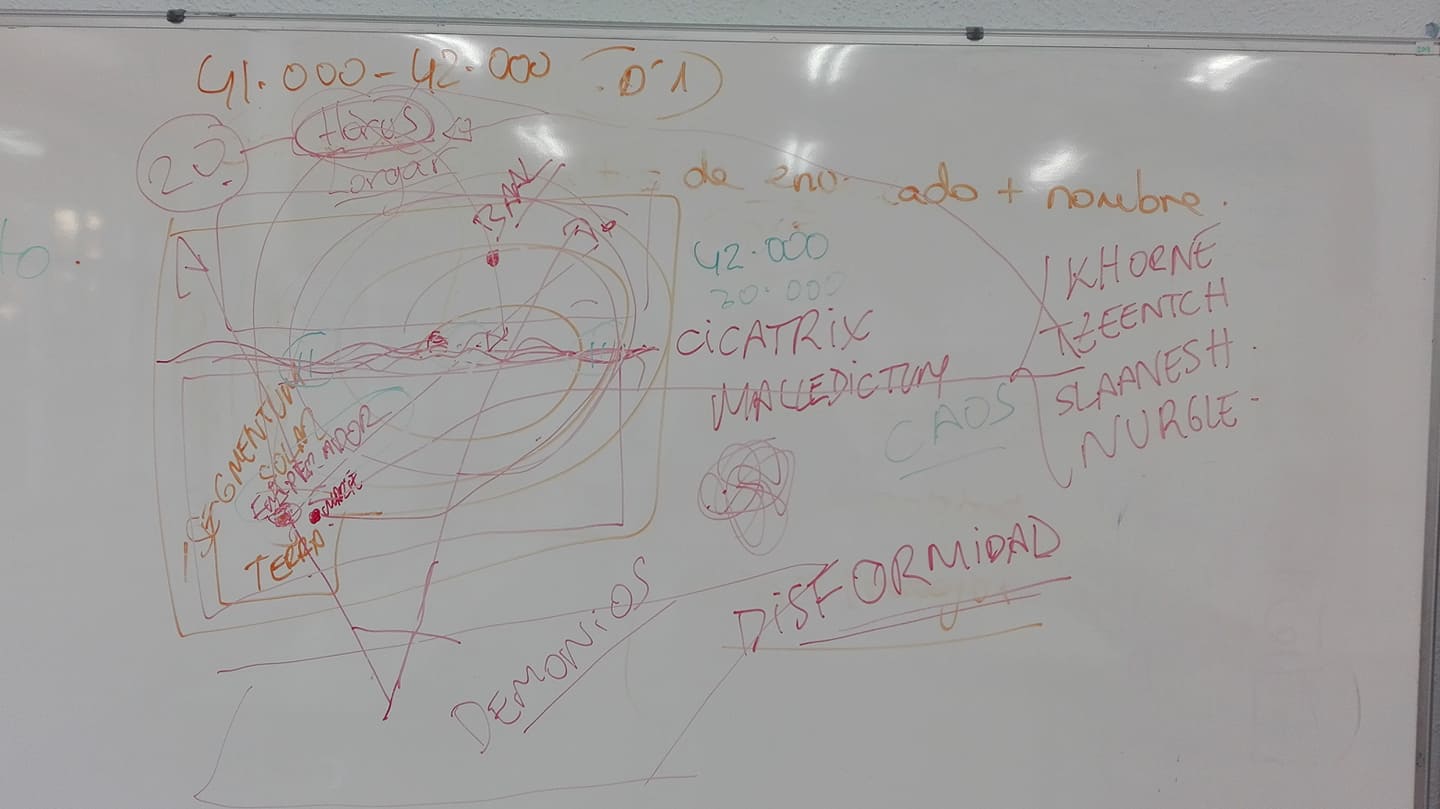 41.000-42.000
20
Horus
Lorgar
BAAL
de eno ado + nombre.
to.
42.000
30.000
CiCATRIX
MALLEDICTUM
CAOS
KHORNE
TZEENTCH
SLAANESH.
NURGLE-
SEGMENTUM
SOLAR
EMPERADOR
MARTE
TERRA
DEMONiOS
DiSFORMiDAD